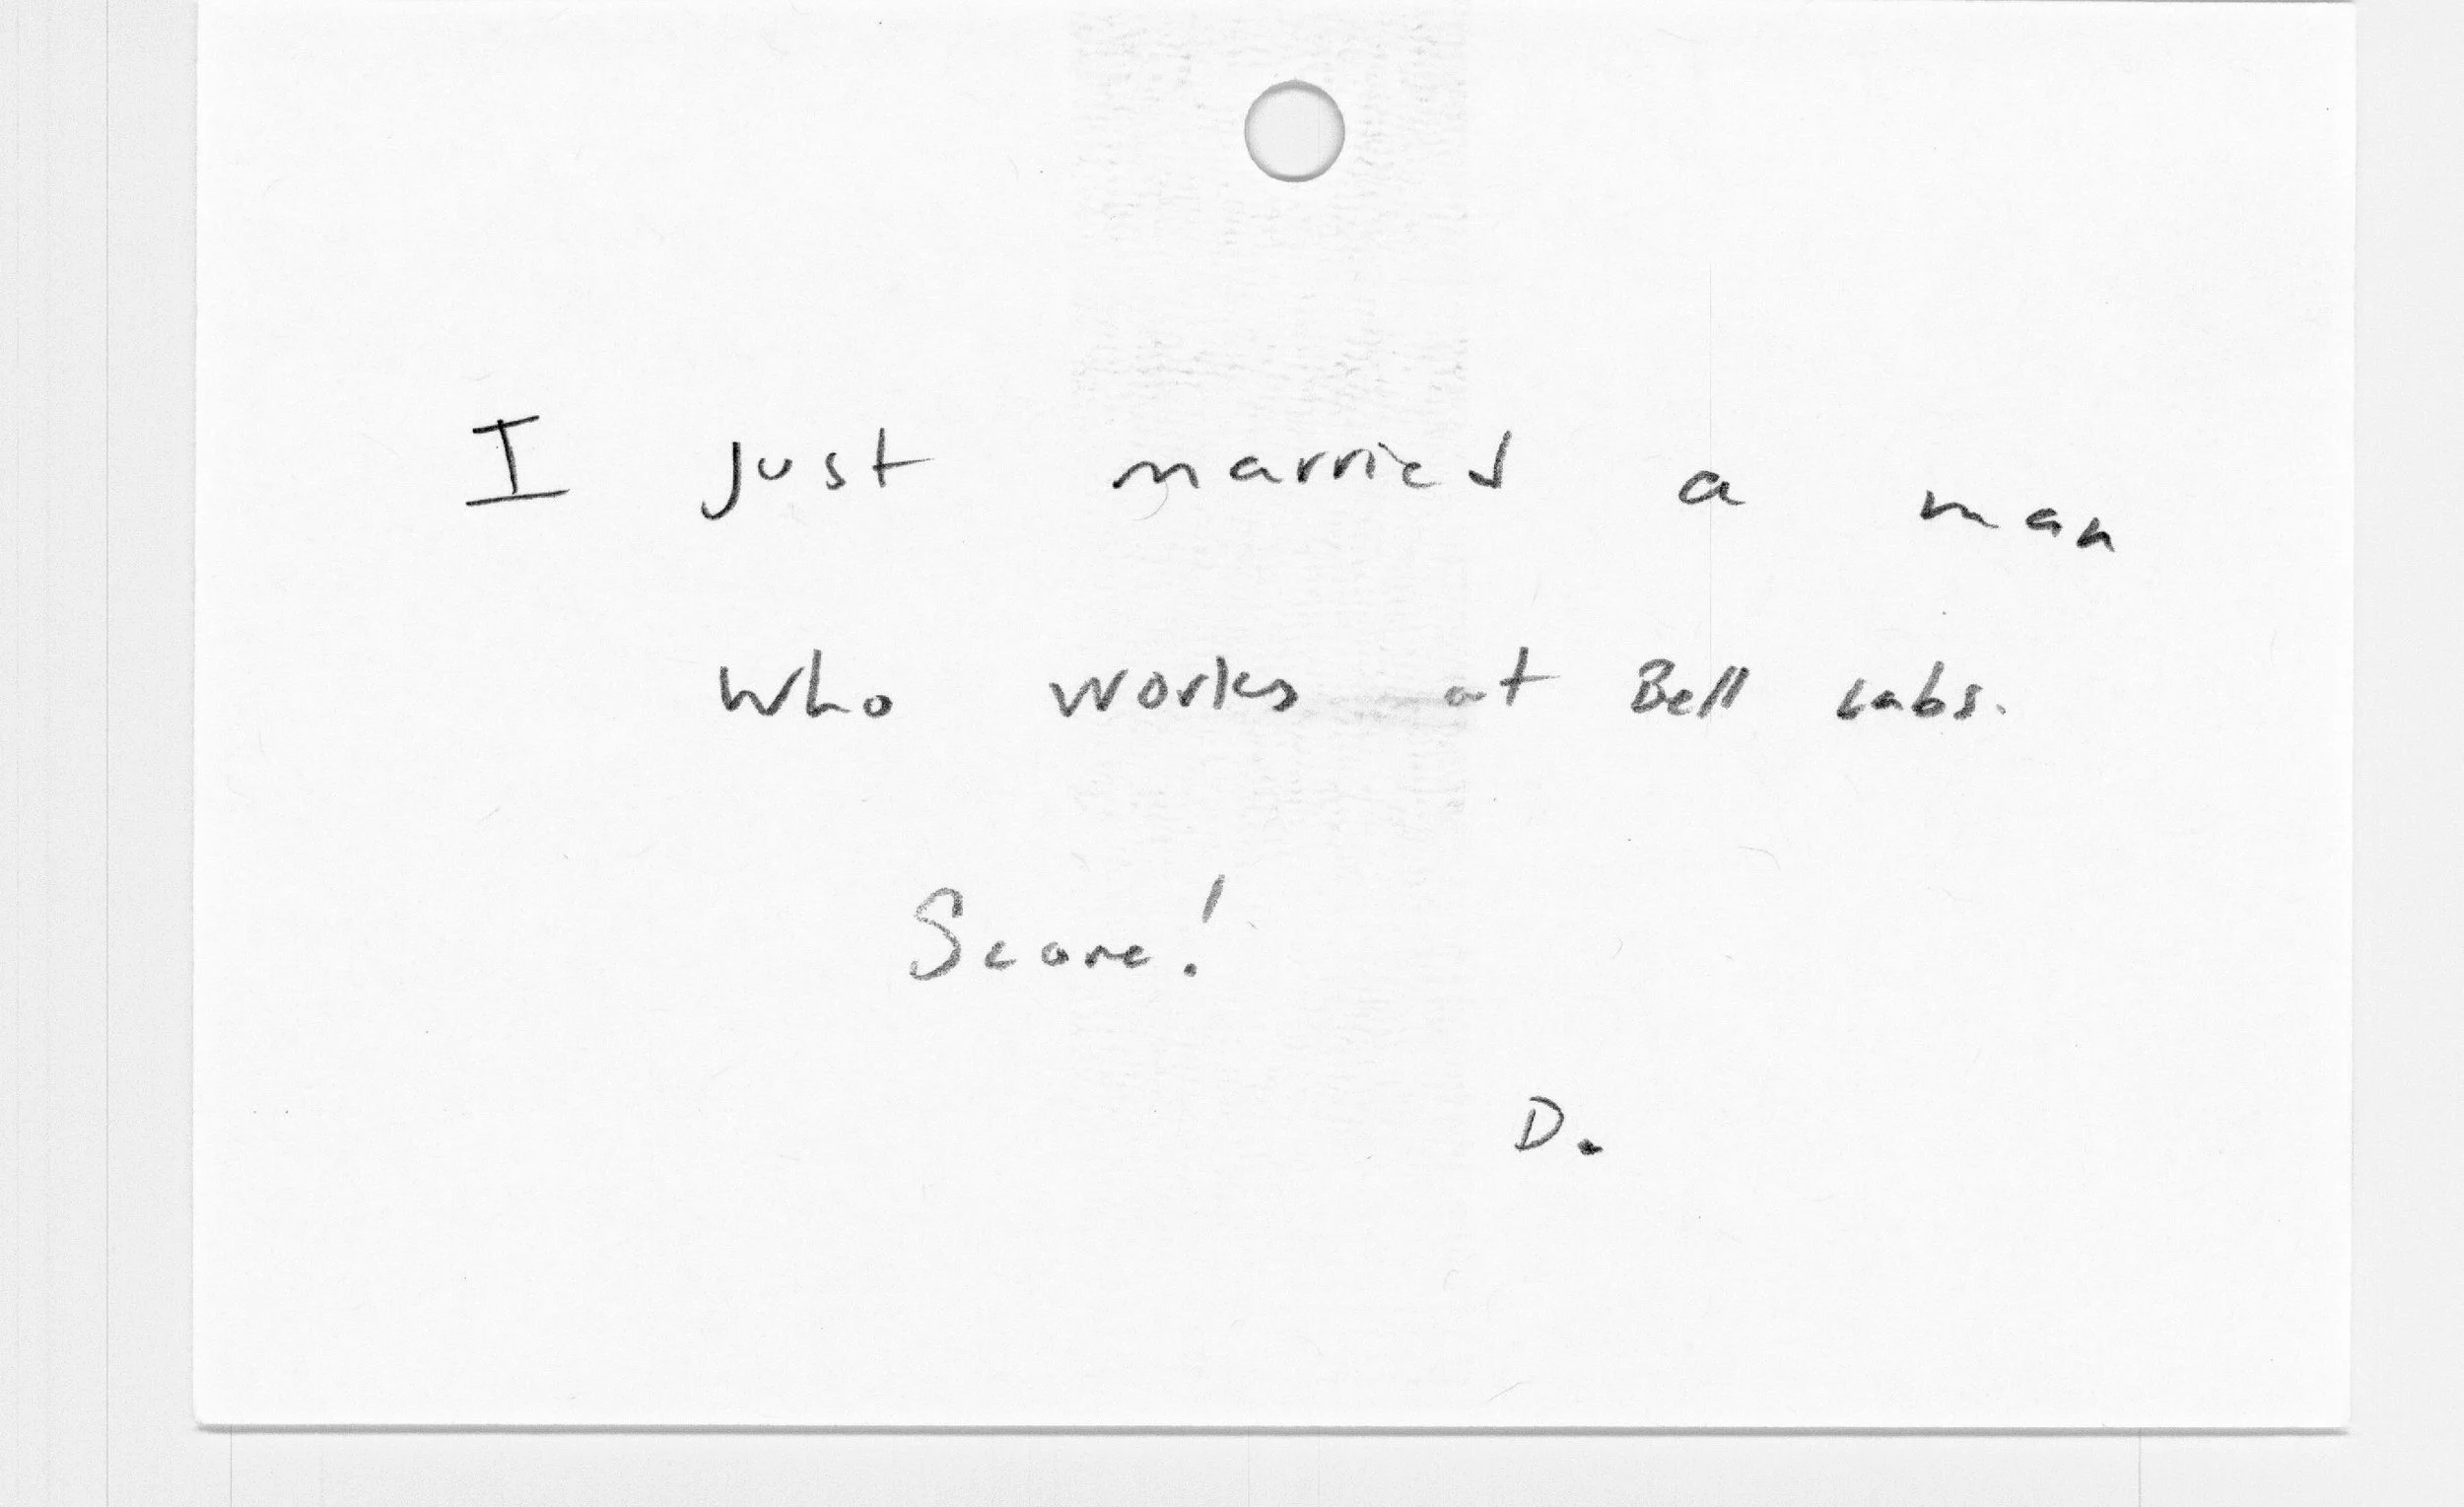 I just married a man
who works at Bell Labs.
Score!
D.